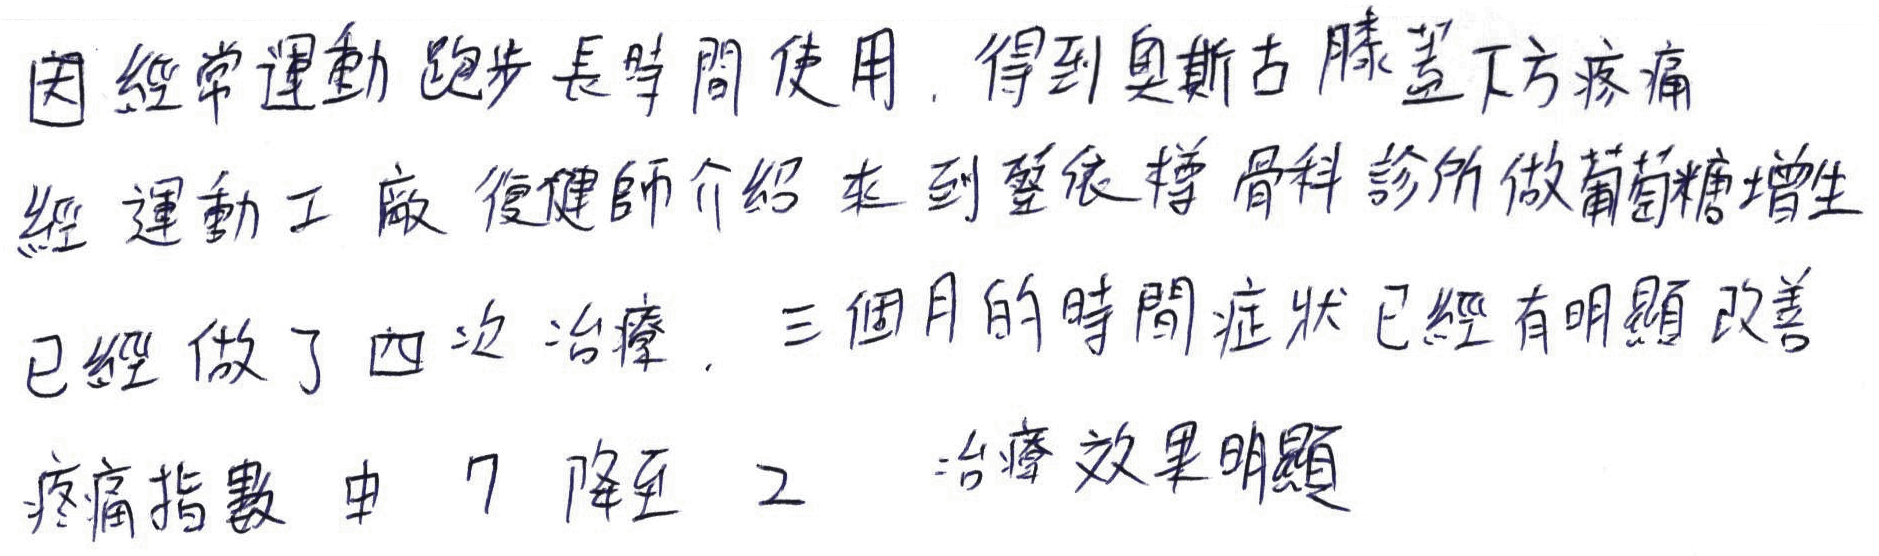 因經常運動跑步長時間使用.得到奧斯古膝蓋下方疼痛
經運動工廠復健師介紹來到整依樽骨科診所做葡萄糖增生
已經做了四次治療.三個月的時間症狀已經有明顯改善
疼痛指數由 7 降至 2 治療效果明顯